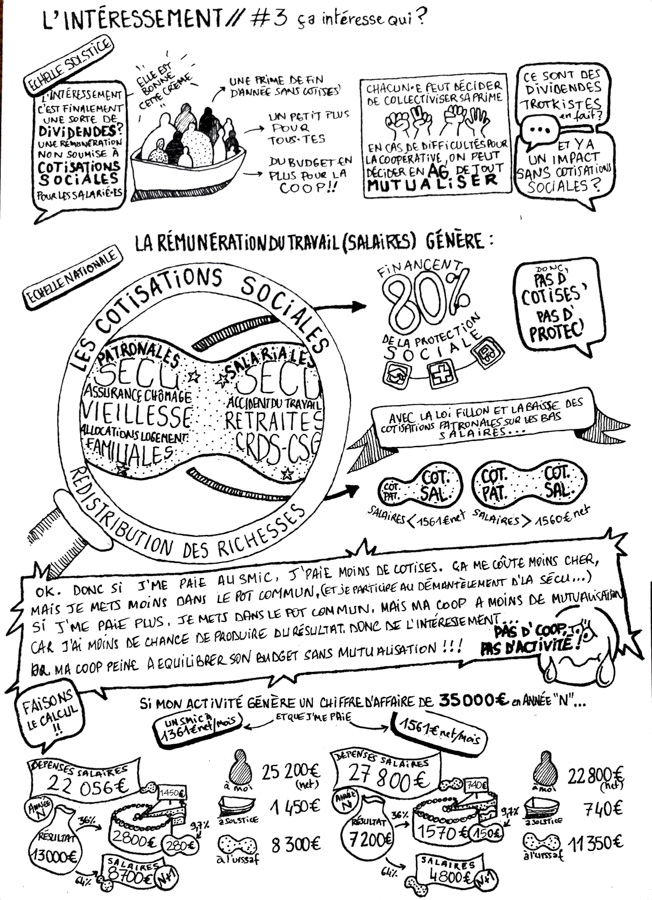 L'INTÉRESSEMENT // #3 ça intéresse qui ?
ECHELLE SOLSTICE
L'INTÉRESSEMENT
C'EST FINALEMENT
UNE SORTE DE
DIVIDENDES?
UNE RÉMUNÉRATION
NON SOUMISE À
COTISATIONS
SOCIALES
POUR LES SALARIÉ·ES
ELLE EST
BONNE
CETTE CRÈME
UNE PRIME DE FIN
D'ANNÉE SANS COTISES!
UN PETIT PLUS
POUR
TOUS·TES
DU BUDGET EN
PLUS POUR LA
COOP!!
CHACUN·E PEUT DÉCIDER
DE COLLECTIVISER SA PRIME
EN CAS DE DIFFICULTÉS POUR
LA COOPÉRATIVE, ON PEUT
DÉCIDER EN AG, DE TOUT
MUTUALISER
CE SONT DES
DIVIDENDES
TROTKISTES
en fait?
...
ET Y A
UN IMPACT
SANS COTISATIONS
SOCIALES?
LA RÉMUNÉRATION DU TRAVAIL (SALAIRES) GÉNÈRE :
ECHELLE NATIONALE
LES COTISATIONS SOCIALES
PATRONALES
SECU
ASSURANCE CHÔMAGE
VIEILLESSE
ALLOCATIONS LOGEMENT
FAMILIALES
SALARIALES
SECU
ACCIDENT DU TRAVAIL
RETRAITES
CRDS-CSG
REDISTRIBUTION DES RICHESSES
FINANCENT
80%
DE LA PROTECTION
SOCIALE
DONC,
PAS D'
COTISES'
PAS D'
PROTEC!
AVEC LA LOI FILLON ET LA BAISSE DES
COTISATIONS PATRONALES SUR LES BAS
SALAIRES...
COT.
PAT.
COT.
SAL.
SALAIRES < 1561€ net
COT.
PAT.
COT.
SAL.
SALAIRES > 1560€ net
OK. DONC SI J'ME PAIE AU SMIC, J'PAIE MOINS DE COTISES. ÇA ME COÛTE MOINS CHER,
MAIS JE METS MOINS DANS LE POT COMMUN, (ET JE PARTICIPE AU DÉMANTÈLEMENT D'LA SÉCU...)
SI J'ME PAIE PLUS, JE METS DANS LE POT COMMUN, MAIS MA COOP A MOINS DE MUTUALISATION
CAR J'AI MOINS DE CHANCE DE PRODUIRE DU RÉSULTAT. DONC DE L'INTÉRESSEMENT...
OR MA COOP PEINE A EQUILIBRER SON BUDGET SANS MUTUALISATION !!!
PAS D'COOP,
PAS D'ACTIVITÉ!
FAISONS
LE CALCUL
!!
SI MON ACTIVITÉ GÉNÈRE UN CHIFFRE D'AFFAIRE DE 35000€ en ANNÉE "N"...
ET QUE J'ME PAIE
UN SMIC À
1361€ net/mois
1561€ net/mois
DEPENSES SALAIRES
22 056€
ANNÉE
N
RÉSULTAT
13000€
36%
2800€
1450€
9,7%
280€
64%
SALAIRES
8700€
N+1
à moi
25 200€
(net)
à SOLSTICE
1 450€
à l'urssaf
8 300€
DEPENSES SALAIRES
27 800€
ANNÉE
N
RÉSULTAT
7200€
36%
1570€
740€
9,7%
150€
64%
SALAIRES
4800€
N+1
à moi
22 800€
(net)
à SOLSTICE
740€
à l'urssaf
11 350€